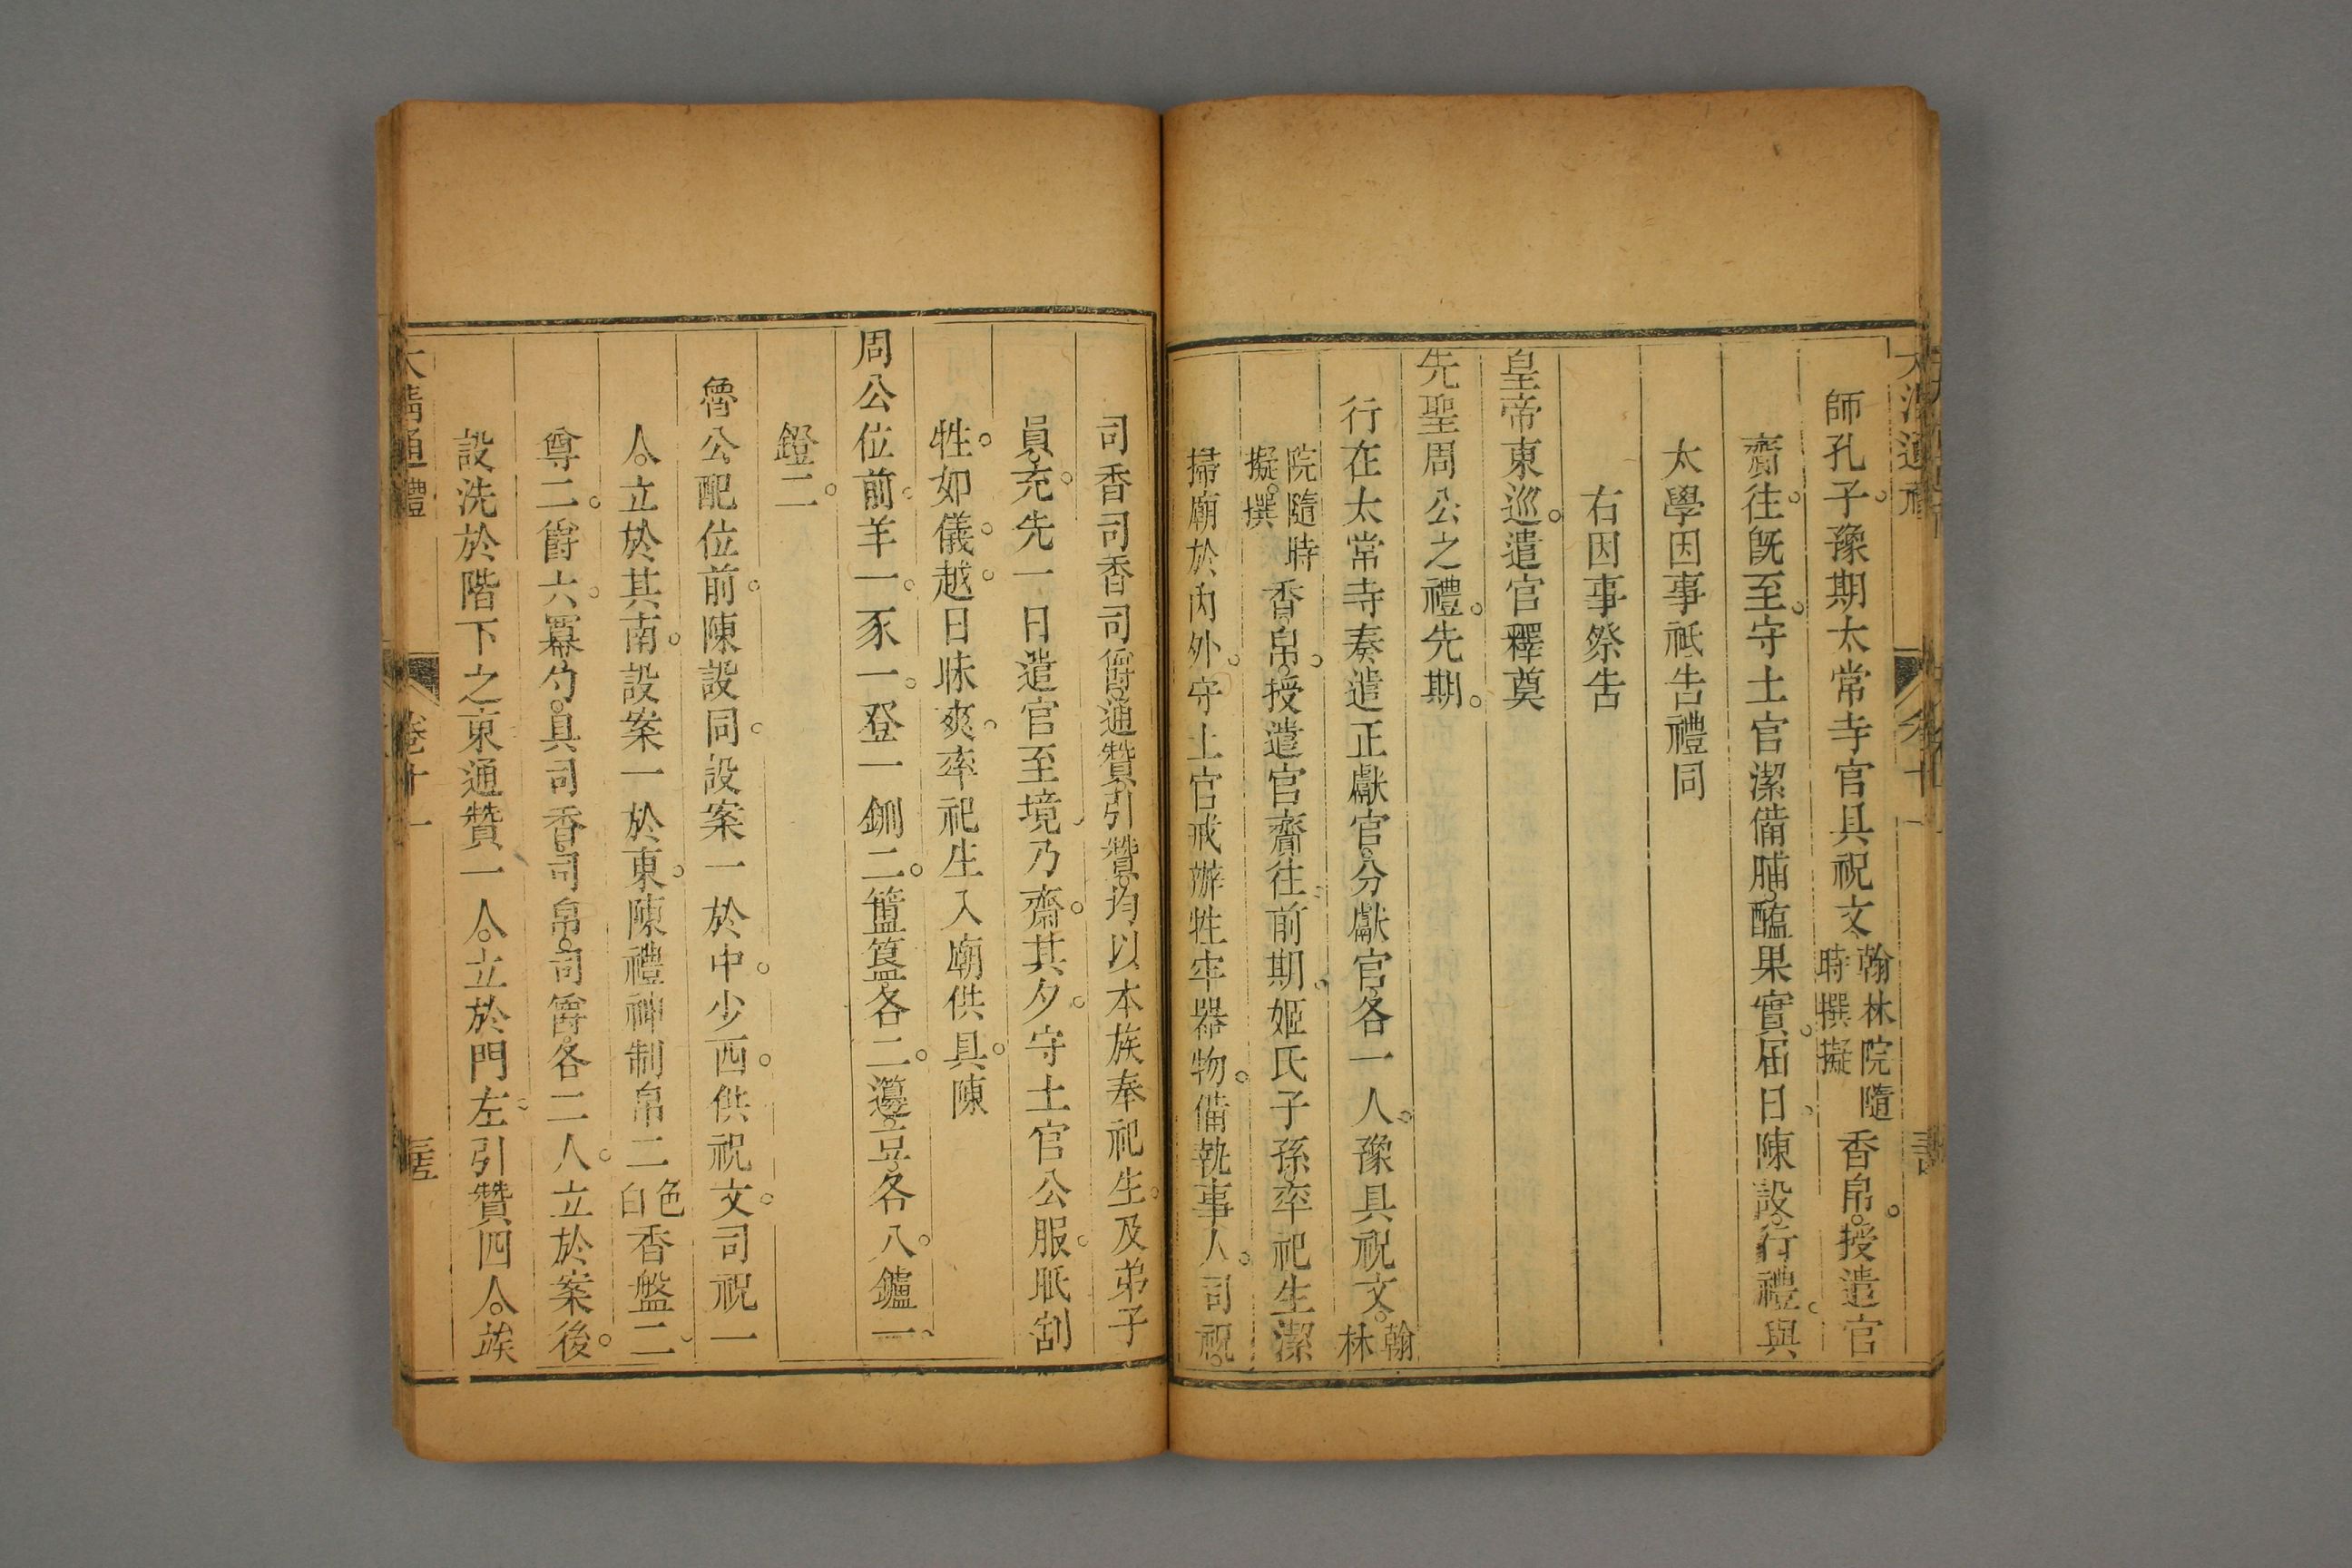 師孔子豫期太常寺官具祝文翰林院隨時撰擬香帛授遣官
齎往既至守土官潔備脯醢果實屆日陳設行禮與
太學因事祗告禮同
右因事祭告
皇帝東巡遣官釋奠
先聖周公之禮先期
行在太常寺奏遣正獻官分獻官各一人豫具祝文翰林
院隨時擬撰香帛授遣官齎往前期姬氏子孫率祀生潔
掃廟於內外守土官戒辦牲牢器物備執事人司祝
司香司帛司爵通贊引贊均以本族奉祀生及弟子
員充先一日遣官至境乃齋其夕守土官公服眡割
牲如儀越日昧爽率祀生入廟供具陳
周公位前羊一豕一登一鉶二簠簋各二籩豆各八鑪一
鐙二
魯公配位前陳設同設案一於中少西供祝文司祝一
人立於其南設案一於東陳禮神制帛二色白香盤二
尊二爵六冪勺具司香司帛司爵各二人立於案後
設洗於階下之東通贊一人立於門左引贊四人族
大清通禮 卷十一